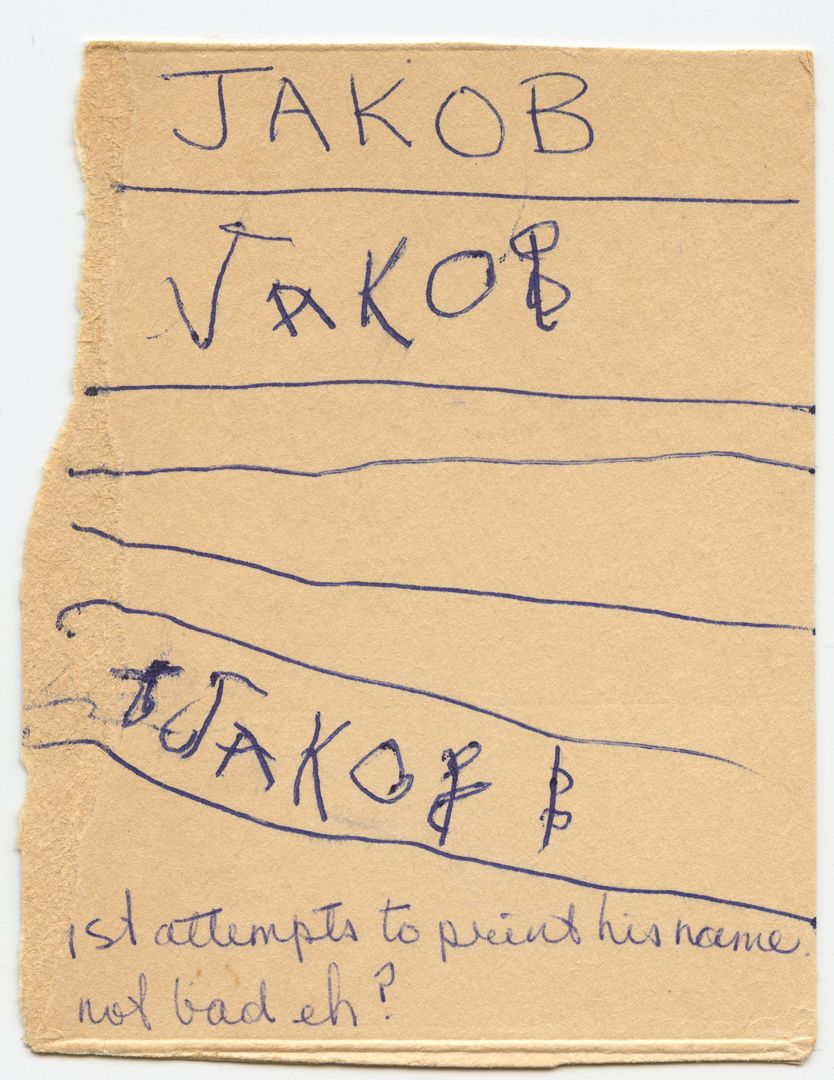 JAKOB
JAKOB
JAKOB B
1st attempts to print his name.
not bad eh?